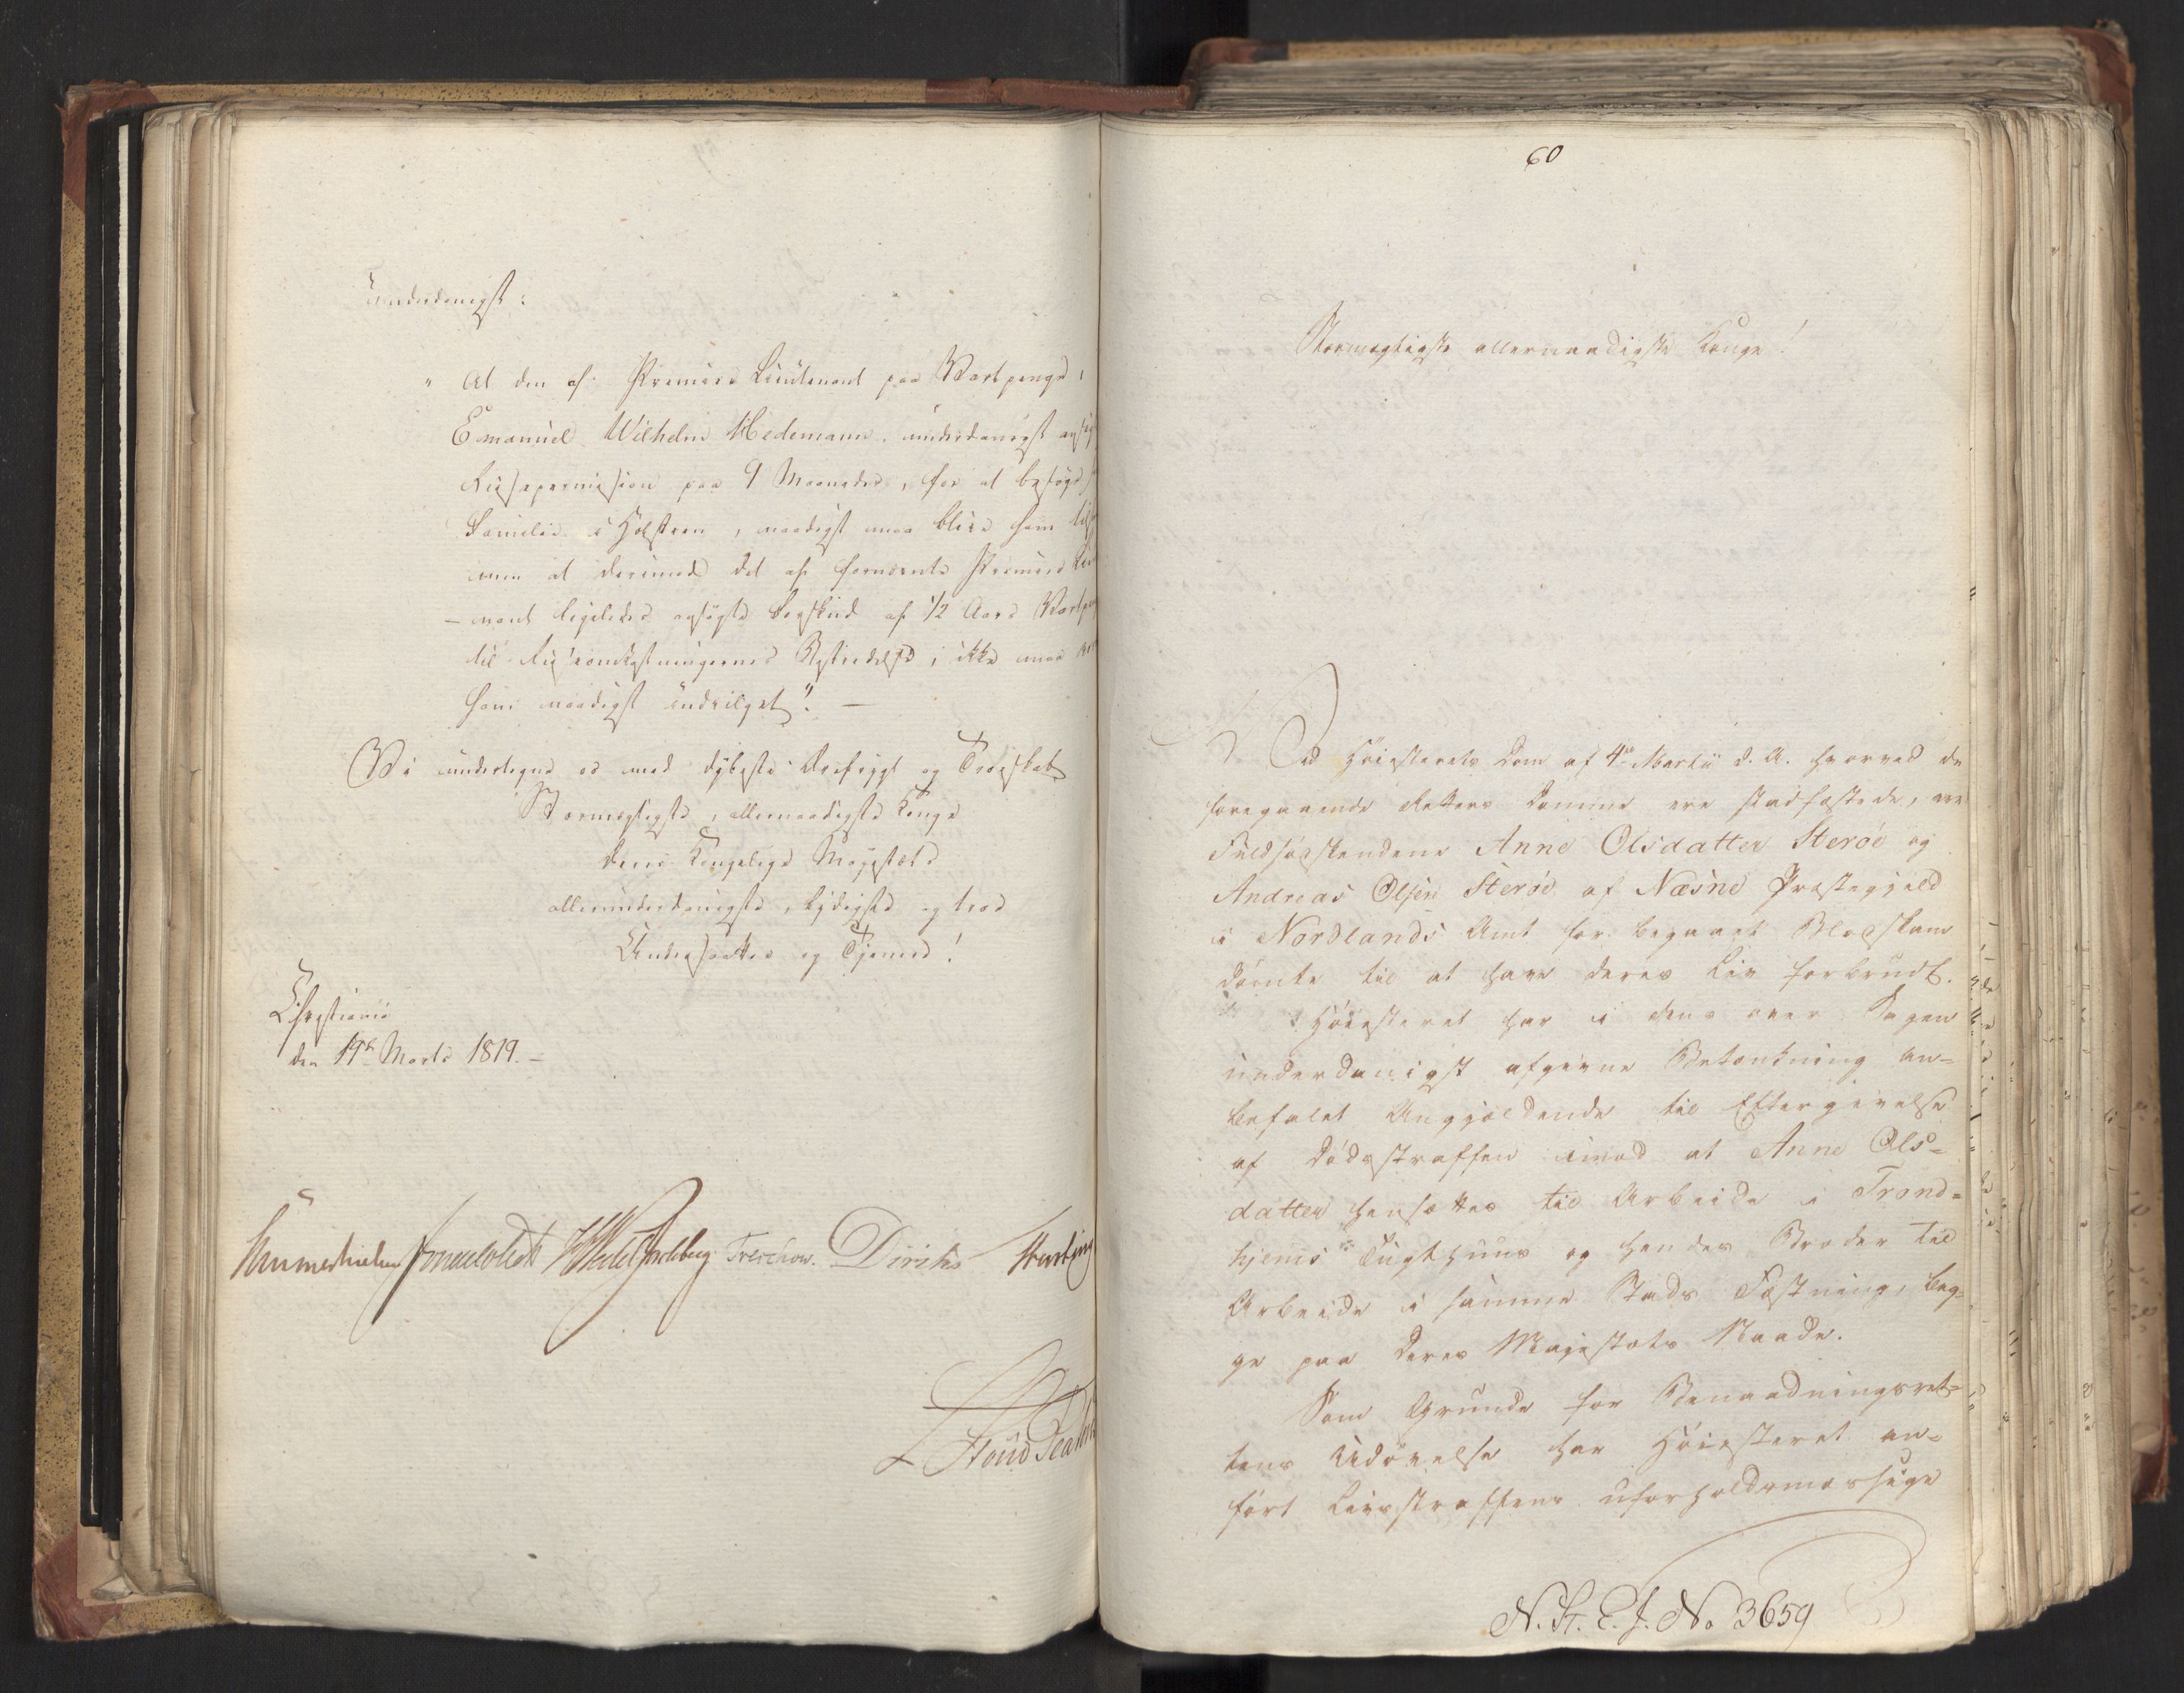 underdanigst:
" At den af Premier Lieutenant paa Vartpenge,
Emanuel Wilhelm Hedemann, underdanigst
Reisepermission paa 9 Maaneder, for at besøge
Familie i Holsteen, naadigst maa blive ham
men at derimod det af fornævnte Premier
-nant ligeledes ansøgte Forskud af 1/2 Aars
til Reiseomkostningernes Bestridelse, ikke maa
ham naadigst indvilget". —
Vi undertegne os med dybeste Ærefrygt og Troeskab
Stormægtigste, allernaadigste Konge
Deres Kongelige Majestæts
allerunderdanigste, lydigste og troe
Undersaatter og Tjenere!
Christiania
den 19de Marts 1819. —
Sommerhielm Wedel Jarlsberg Treschow. Diriks
60
Stormægtigste allernaadigste Konge!
Ved Høiesterets Dom af 4de Martii d. A. hvorved de
foregaaende Retters Domme ere stadfæstede, ere
Fuldsøskendene Anne Olsdatter Sterøe og
Andreas Olsen Sterøe af Næsne Præstegjeld
i Nordlands Amt for begaaet Blodskam
dømte til at have deres Liv forbrudt.
Høiesteret har i dens over Sagen
underdanigst afgivne Betænkning an=
befalet Angjældende til Eftergivelse
af Dødsstraffen imod at Anne Ols=
datter hensættes til Arbeide i Trond=
hjems Tugthuus og hendes Broder til
Arbeide i samme Stads Fæstning, beg=
ge paa Deres Majestæts Naade.
Som Grunde for Benaadningsret=
tens Udøvelse har Høiesteret an=
ført Livsstraffens uforholdsmæssige
N. St. E. J. No 3659